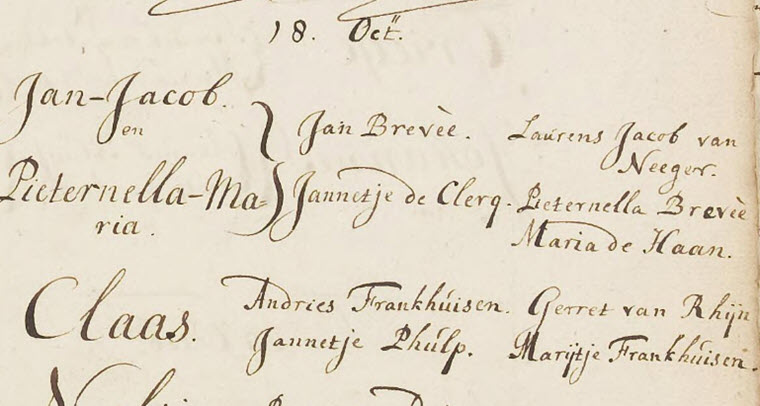 18. Octr.
Jan-Jacob.
en
Pieternella-Ma=
ria.
Jan Brevèe.
Jannetje de Clerq.
Laurens Jacob van
Neeger.
Pieternella Brevèe
Maria de Haan.
Claas.
Andries Frankhúisen.
Jannetje Phúlp.
Gerret van Rhijn
Marijtje Frankhúisen.